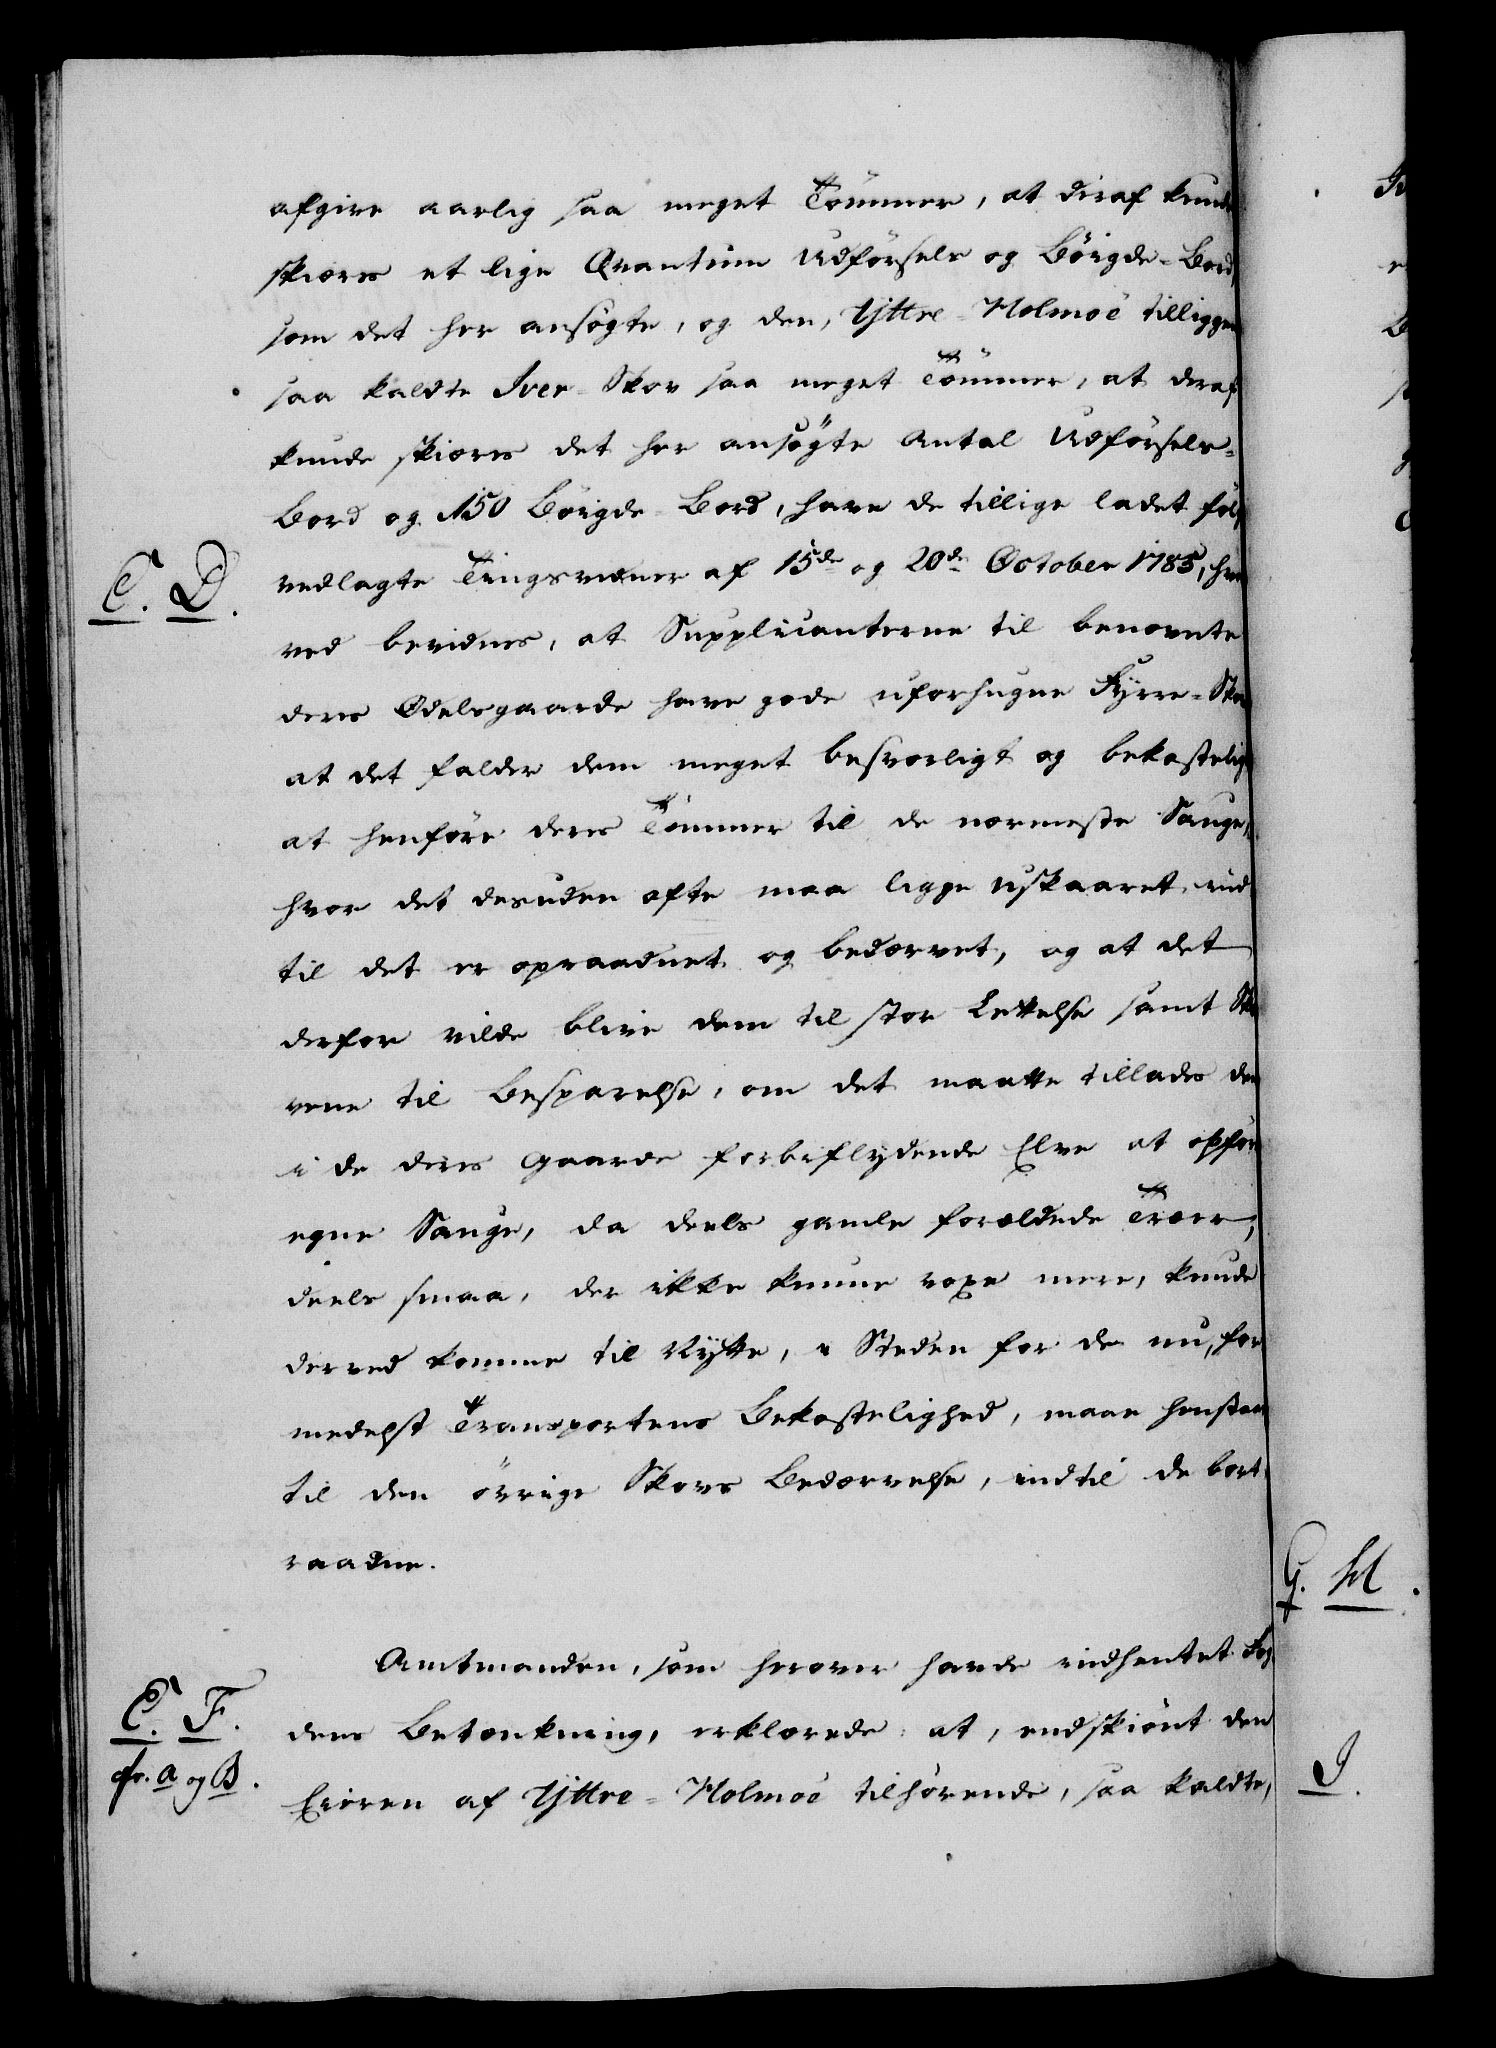 afgive aarlig saa meget Tömmer, at deraf kunde
skiæres et lige Qvantum Udförsels og Böigde-Bord,
som det her ansögte, og den, Yttre-Holmoe tilliggen
saa kaldte Iver-Skov saa meget Tömmer, at deraf
kunde skiæres det her ansögte Antal Udförsels-
Bord og 150 Böigde-Bord, have de tillige ladet föl
C. D.
vedlagte Tingsvidner af 15de og 20de October 1785, hvor
ved bevidnes, at Supplicanterne til benævnte
deres Odelsgaarde have gode uforhugne Fyrre-Sko
at det falder dem meget besværligt og bekostelig
at henföre deres Tömmer til de nærmeste Sauge,
hvor det desuden ofte maa ligge uskaaret ind
til det er opraadnet og bedærvet, og at det
derfor vilde blive dem til stor Lettelse samt Sko
vene til Besparelse, om det maatte tillades dem
i de deres Gaarde forbiflydende Elve at opför
egne Sauge, da deels gamle forældede Træer,
deels smaa, der ikke kunne voxe mere, kunde
derved komme til Nytte, i Steden for de nu, for
medelst Transportens Bekostelighed, maae henstaae
til den övrige Skovs Bedærvelse, indtil de bort
raadne.
Amtmanden, som herover havde indhentet Fog
E. F.
cfr. A og B.
dens Betænkning, erklærede: at, endskiönt den
Eieren af Yttre-Holmoe tilhörende, saa kaldte,
G. H.
I.